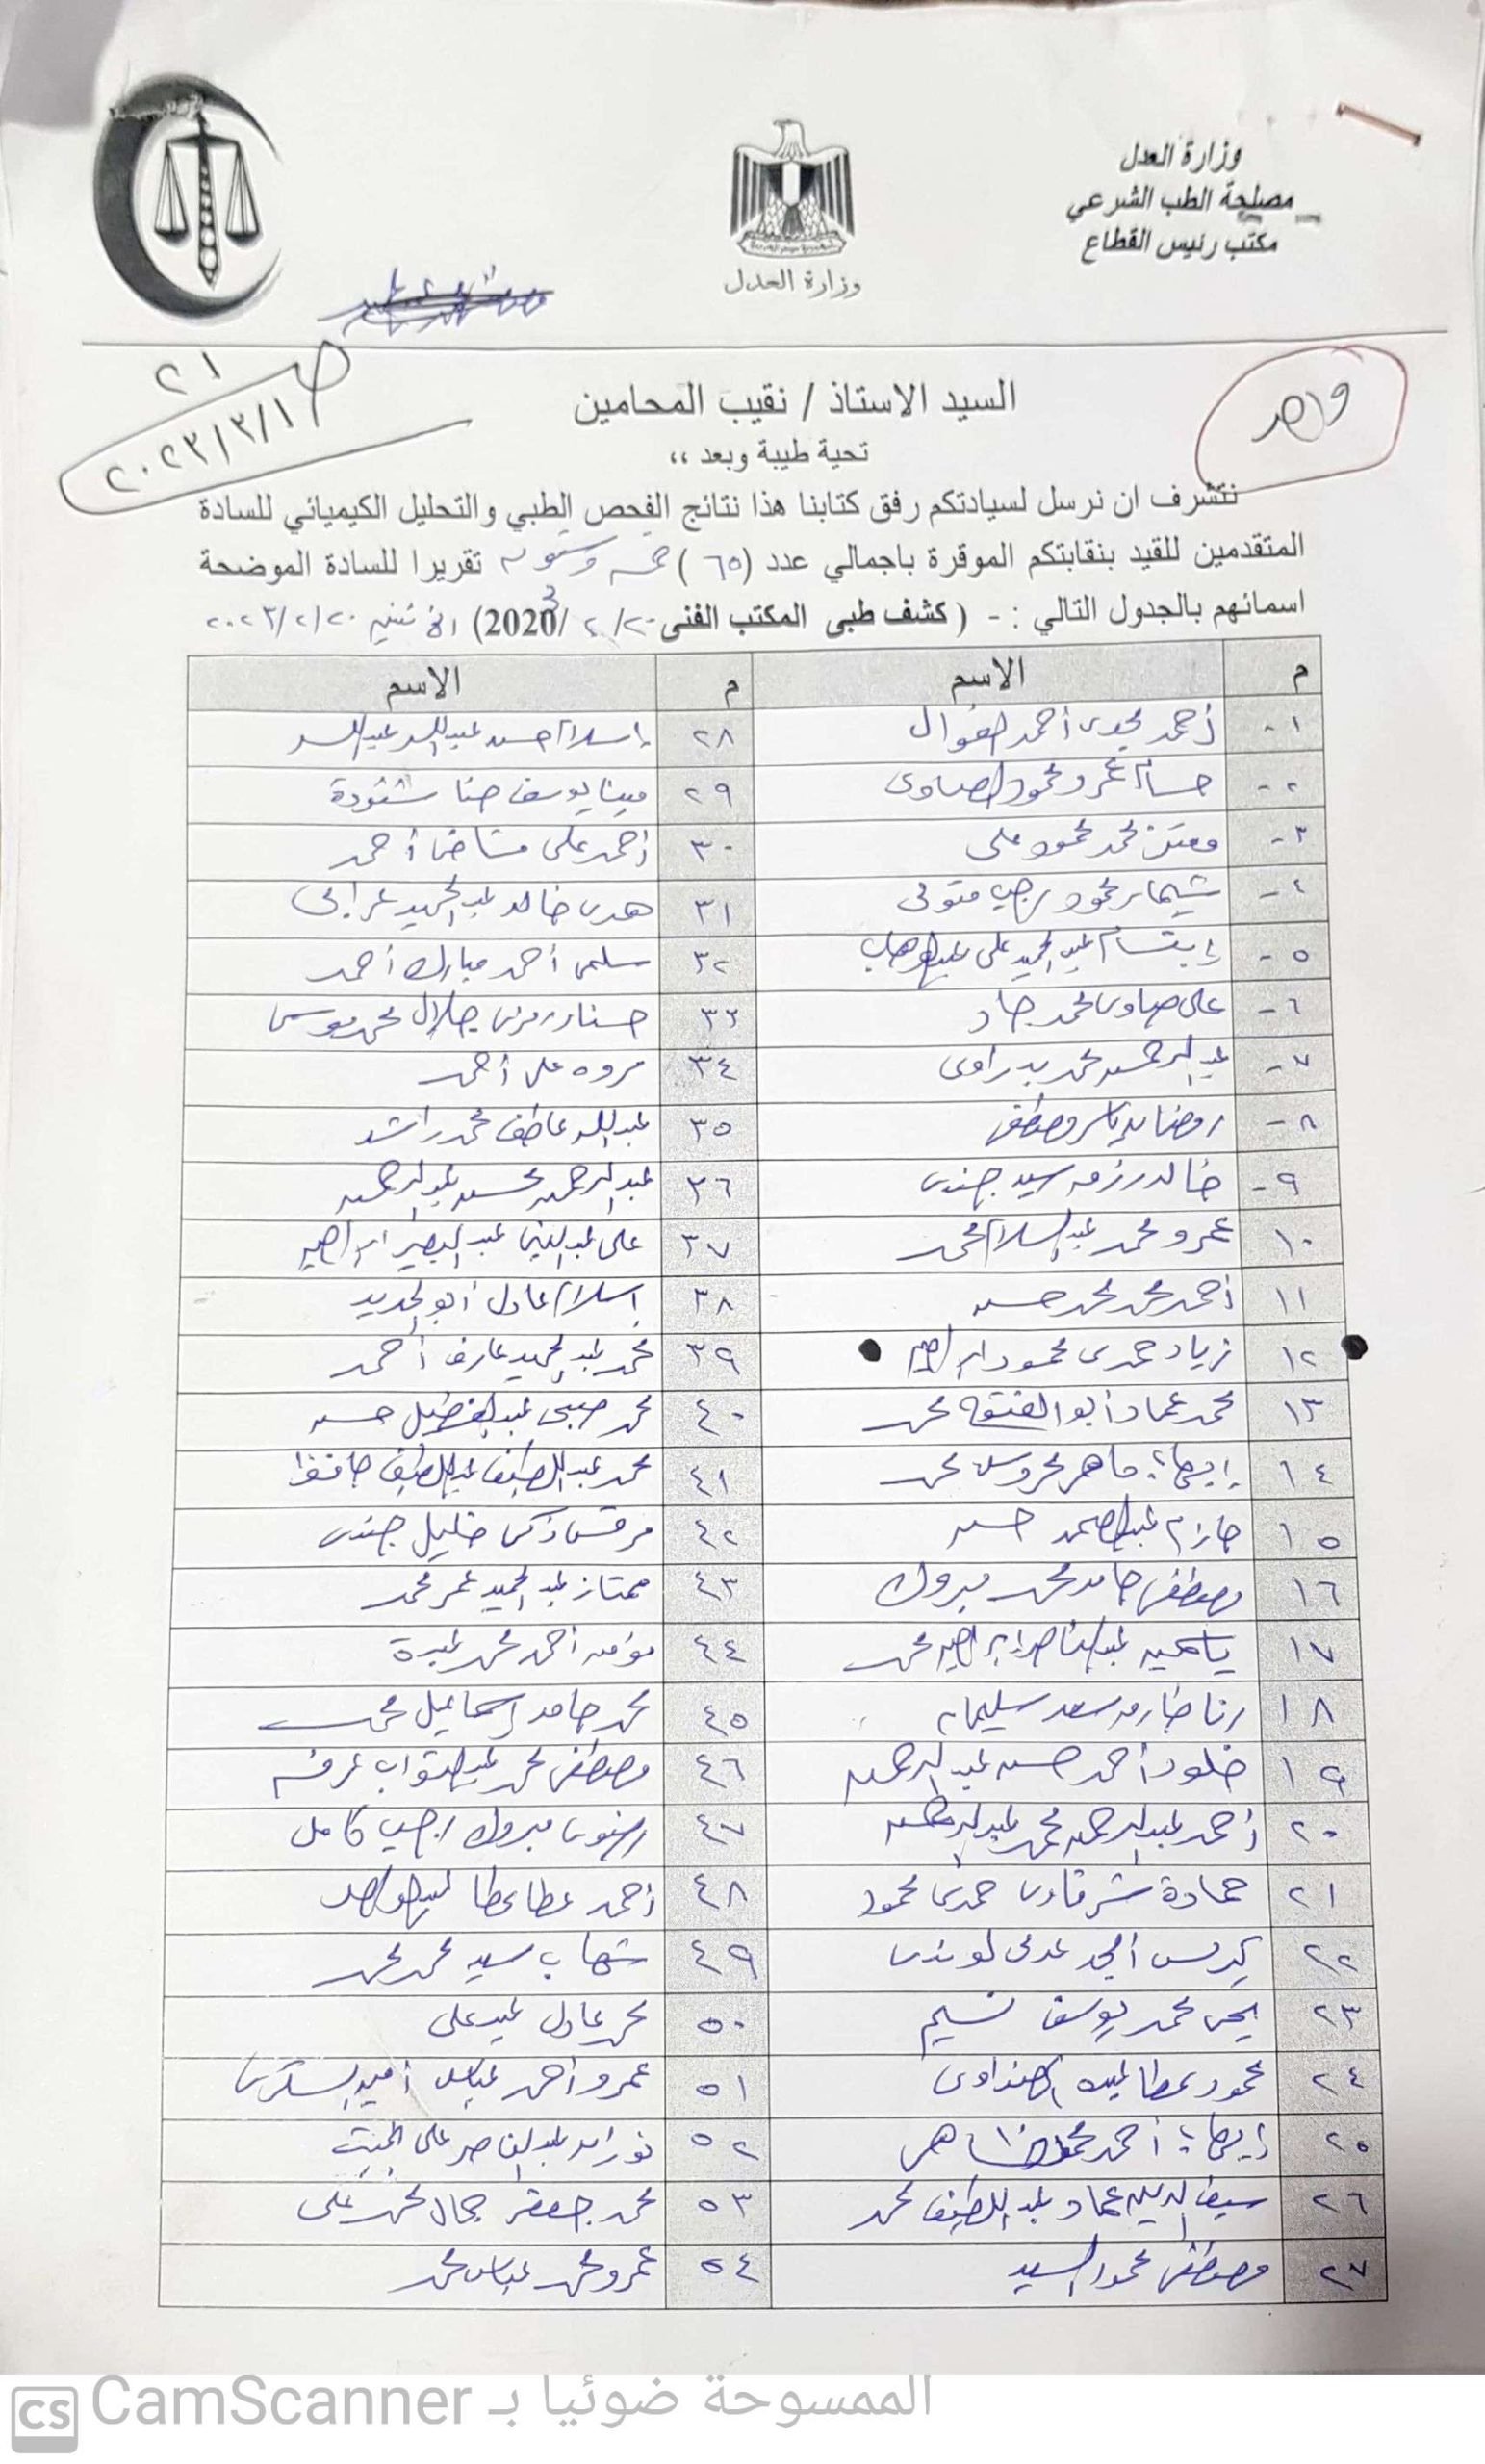 وزارة العدل
مصلحة الطب الشرعي
مكتب رئيس القطاع
وزارة العدل
٢١
٢٠٢٣/٣/١
واحد
السيد الاستاذ / نقيب المحامين
تحية طيبة وبعد ،،
نتشرف ان نرسل لسيادتكم رفق كتابنا هذا نتائج الفحص الطبي والتحليل الكيميائي للسادة
المتقدمين للقيد بنقابتكم الموقرة باجمالي عدد (٦٥) خمسه وستون تقريرا للسادة الموضحة
اسمائهم بالجدول التالي : - ( كشف طبى المكتب الفنى ٢٠/٢/2023) الاثنين ٢٠٢٣/٢/٢٠
م الاسم م الاسم
١- أحمد مجدى أحمد ٢٨ إسلام حسن عبدالله عبدالله
٢- حسام عمرو محمود الصاوى ٢٩ مينا يوسف حنا شنودة
٣- معتز محمد محمود على ٣٠ أحمد على أحمد
٤- شيماء محمود رجب متولى ٣١ هدى خالد عبد الحميد عرابى
٥- إبتسام عبد الحميد على عبدالوهاب ٣٢ سلمى أحمد مبارك أحمد
٦- على صاوى محمد جاد ٣٣ حسناء رمزى جلال محمد موسى
٧- عبد الرحمن محمد بدراوى ٣٤ مروه على أحمد
٨- رمضان ياسر مصطفى ٣٥ عبدالله عاطف محمد راشد
٩- خالد رزق سيد جندى ٣٦ عبدالرحمن محسن عبدالرحمن
١٠ عمرو محمد عبد السلام محمد ٣٧ على عبد الغنى عبد البصير ابراهيم
١١ أحمد محمد محمد حسن ٣٨ إسلام عادل أبو الحديد
١٢ زياد حمدى محمود ابراهيم ٣٩ محمد عبد الحميد عارف أحمد
١٣ محمد عماد أبو الفتوح محمد ٤٠ محمد صبحى عبد الفضيل حسن
١٤ إيهاب ماهر محروس محمد ٤١ محمد عبد اللطيف عبد اللطيف حافظ
١٥ حازم عبدالصمد حسن ٤٢ مرقس زكى خليل جندى
١٦ مصطفى حامد محمد مبروك ٤٣ ممتاز عبد الحميد عمر محمد
١٧ ياسمين عبد الناصر إبراهيم محمد ٤٤ مؤمن أحمد محمد
١٨ رنا طارق سعد سليمان ٤٥ محمد حامد إسماعيل محمد
١٩ خلود أحمد حسن عبد الرحمن ٤٦ مصطفى محمد عبد التواب عرفه
٢٠ أحمد عبد الرحمن محمد عبد الرحمن ٤٧ مبروك رجب كامل
٢١ حمادة شرقاوى حمدى محمود ٤٨ أحمد عطا عطا عبد الواحد
٢٢ كيرلس امجد عدلى لوندى ٤٩ شهاب سيد محمد محمد
٢٣ يحيى محمد يوسف نسيم ٥٠ محمد عادل عيد على
٢٤ محمود عطا عبده الهنداوى ٥١ عمرو أحمد عباس أمين
٢٥ إيهاب أحمد محمود ٥٢ عبد الناصر على
٢٦ سيف الدين عماد عبد اللطيف محمد ٥٣ محمد جعفر جمال محمد على
٢٧ مصطفى محمود السيد ٥٤ عمرو محمد عباس محمد
CS CamScanner الممسوحة ضوئيا بـ